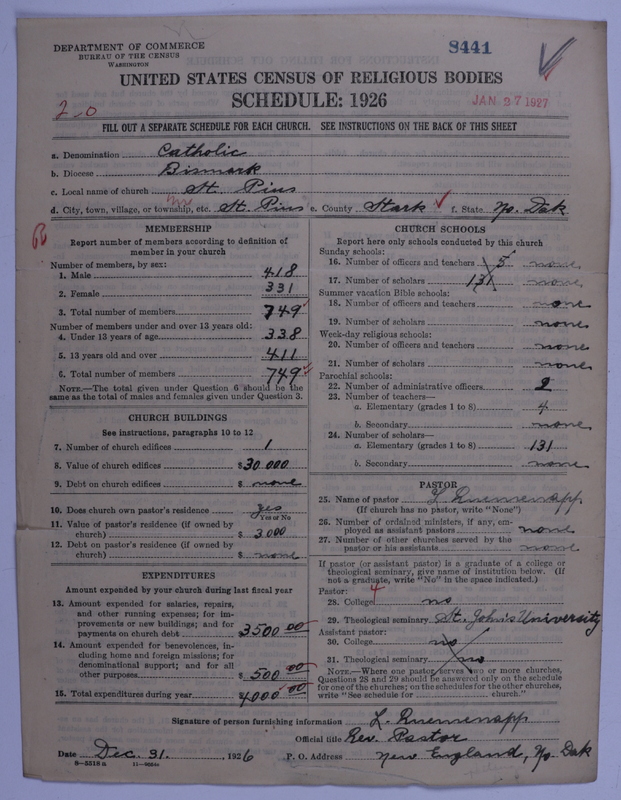 DEPARTMENT OF COMMERCE
BUREAU OF THE CENSUS
WASHINGTON
8441
UNITED STATES CENSUS OF RELIGIOUS BODIES
SCHEDULE: 1926
JAN 27 1927
2-0
FILL OUT A SEPARATE SCHEDULE FOR EACH CHURCH. SEE INSTRUCTIONS ON THE BACK OF THIS SHEET
a. Denomination Catholic
b. Diocese Bismark
c. Local name of church St. Pius
d. City, town, village, or township, etc. St. Pius e. County Stark f. State No. Dak
MEMBERSHIP
Report number of members according to definition of
member in your church
Number of members, by sex:
1. Male 418
2. Female 331
3. Total number of members 749
Number of members under and over 13 years old:
4. Under 13 years of age 338
5. 13 years old and over 411
6. Total number of members 749
NOTE.—The total given under Question 6 should be the
same as the total of males and females given under Question 3.
CHURCH BUILDINGS
See instructions, paragraphs 10 to 12
7. Number of church edifices 1
8. Value of church edifices $30.000
9. Debt on church edifices $ none
10. Does church own pastor's residence yes
Yes or No
11. Value of pastor's residence (if owned by
church) $3.000
12. Debt on pastor's residence (if owned by
church) $ none
EXPENDITURES
Amount expended by your church during last fiscal year
13. Amount expended for salaries, repairs,
and other running expenses; for im-
provements or new buildings; and for
payments on church debt $3500 00
14. Amount expended for benevolences, in-
cluding home and foreign missions; for
denominational support; and for all
other purposes $500 00
15. Total expenditures during year $4000 00
CHURCH SCHOOLS
Report here only schools conducted by this church
Sunday schools:
16. Number of officers and teachers 5 none
17. Number of scholars 131 none
Summer vacation Bible schools:
18. Number of officers and teachers none
19. Number of scholars none
Week-day religious schools:
20. Number of officers and teachers none
21. Number of scholars none
Parochial schools:
22. Number of administrative officers 2
23. Number of teachers—
a. Elementary (grades 1 to 8) 4
b. Secondary none
24. Number of scholars—
a. Elementary (grades 1 to 8) 131
b. Secondary none
PASTOR
25. Name of pastor L.
(If church has no pastor, write "None")
26. Number of ordained ministers, if any, em-
ployed as assistant pastors none
27. Number of other churches served by the
pastor or his assistants none
If pastor (or assistant pastor) is a graduate of a college or
theological seminary, give name of institution below. (If
not a graduate, write "No" in the space indicated.)
Pastor:
28. College no
29. Theological seminary St. John's University
Assistant pastor:
30. College no
31. Theological seminary no
NOTE.—Where one pastor serves two or more churches,
Questions 28 and 29 should be answered only on the schedule
for one of the churches; on the schedules for the other churches,
write "See schedule for church."
Signature of person furnishing information L.
Official title Rev. Pastor
Date Dec. 31, 1926 P. O. Address New England, No. Dak
8-5518 a